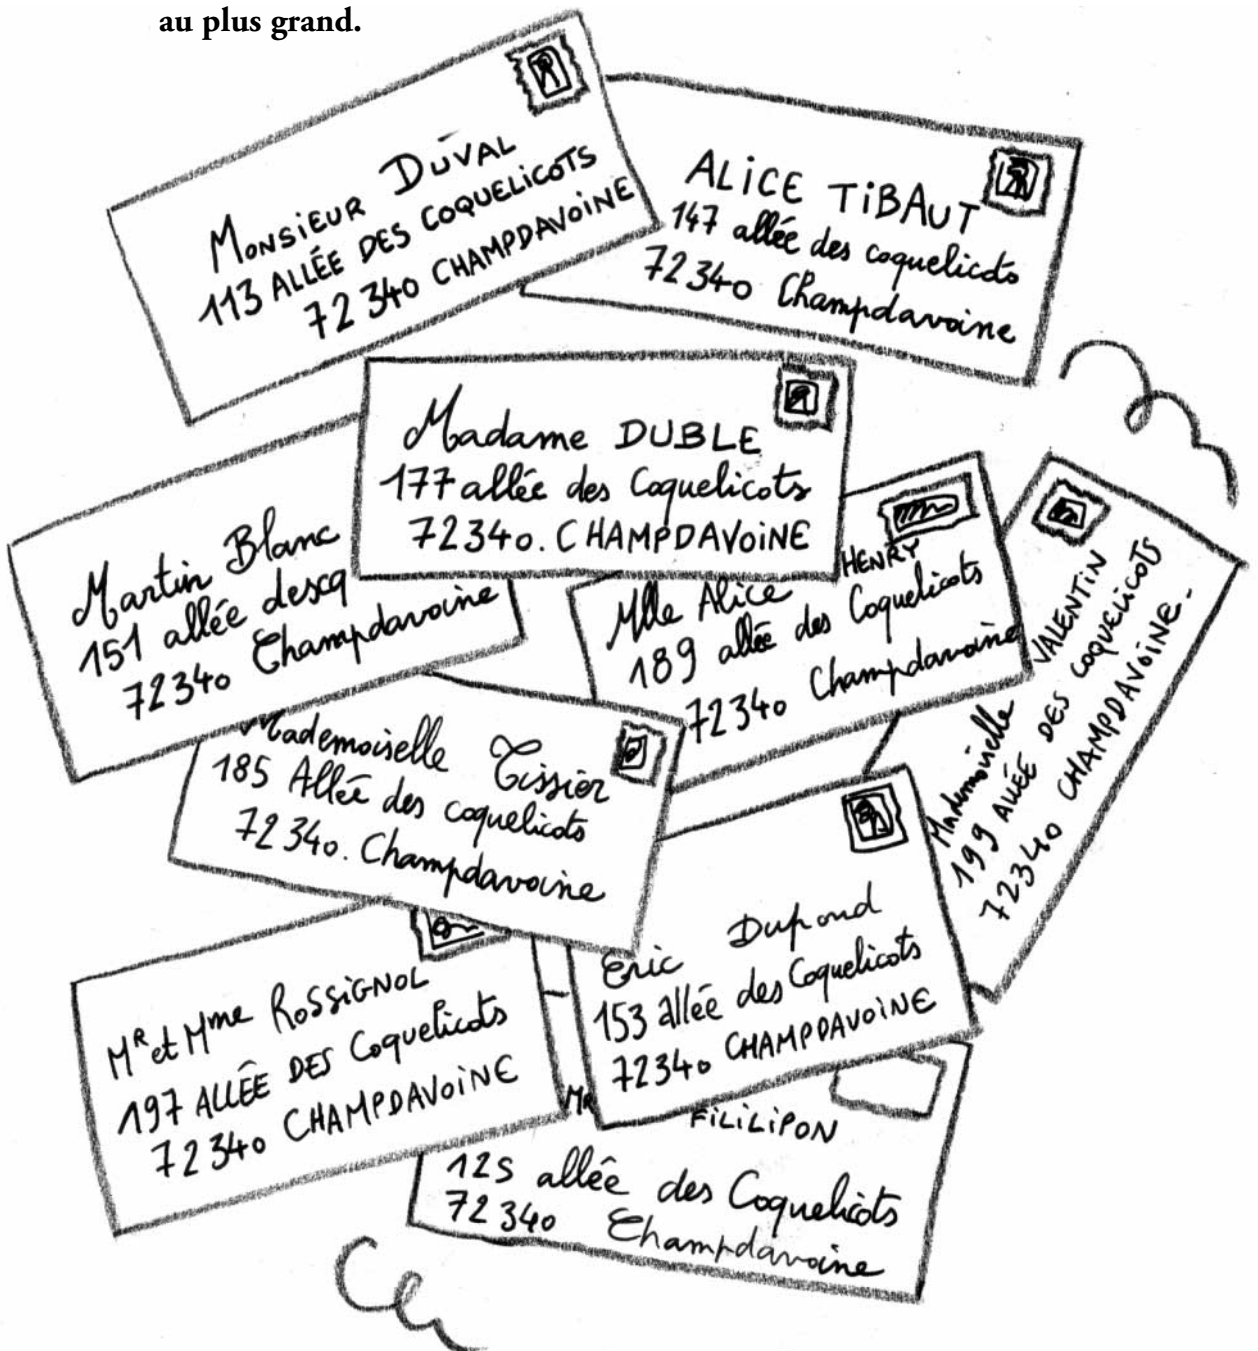 au plus grand.
MONSIEUR DUVAL
113 ALLÉE DES COQUELICOTS
72340 CHAMPDAVOINE
ALICE TIBAUT
147 allée des coquelicots
72340 Champdavoine
Madame DUBLE
177 allée des Coquelicots
72340. CHAMPDAVOINE
Martin Blanc
151 allée descq
72340 Champdavoine
Mlle Alice HENRY
189 allée des Coquelicots
72340 Champdavoine
Mademoiselle VALENTIN
199 ALLÉE DES COQUELICOTS
72340 CHAMPDAVOINE.
Mademoiselle Tissier
185 Allée des coquelicots
72340. Champdavoine
Eric Dupond
153 allée des Coquelicots
72340 CHAMPDAVOINE
MR et Mme ROSSIGNOL
197 ALLÉE DES Coquelicots
72340 CHAMPDAVOINE
MR FILILIPON
125 allée des Coquelicots
72340 Champdavoine